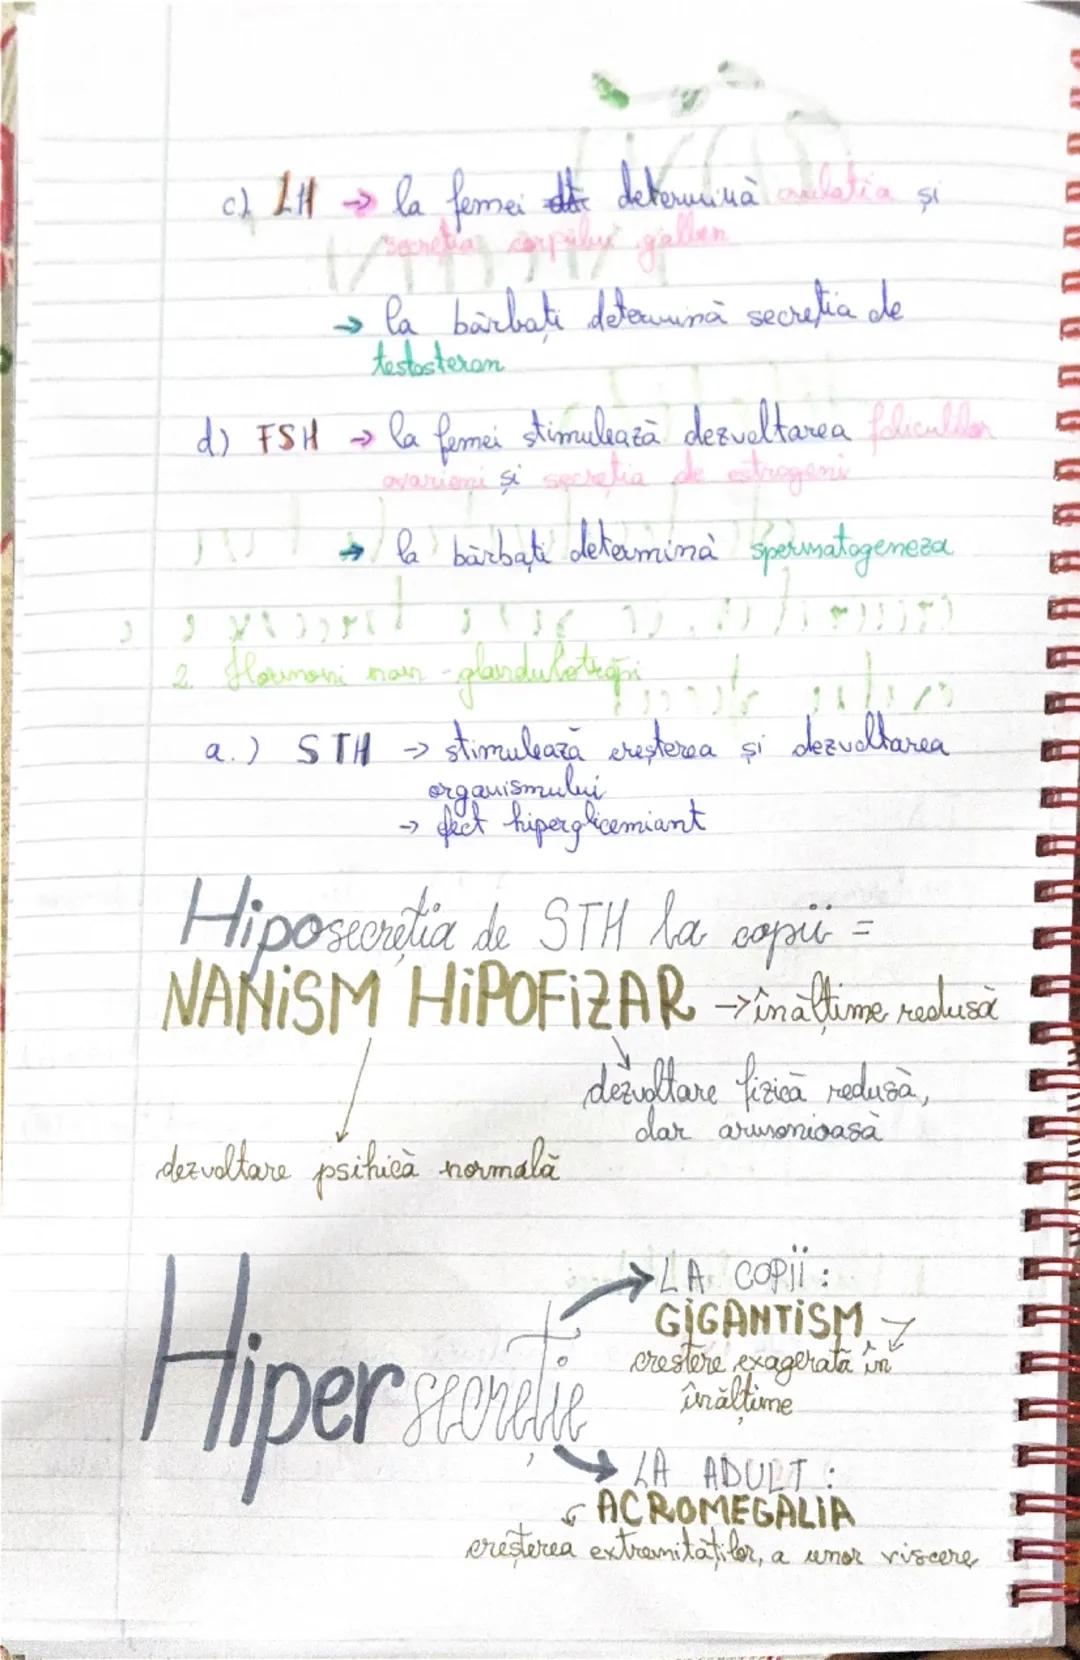 c) LH → la femei determină ovulatia și
secretia corpului galben
→ la bărbați determină secreția de
testosteron
d) FSH → la femei stimulează dezvoltarea foliculilor
ovarieni și secretia de estrogeni
→ la bărbați determină spermatogeneza
2. Hormoni non-glandulotropi
a.) STH → stimulează creșterea și dezvoltarea
organismului
→ efect hiperglicemiant
Hiposecreția de STH la copii =
NANiSM HiPOFiZAR → înălțime redusă
dezvoltare fizică redusă,
dar armonioasă
dezvoltare psihică normală
Hipersecreție
→ LA COPII :
GiGANTiSM
crestere exagerată în
înălțime
→ LA ADULT :
ACROMEGALIA
creșterea extremităților, a unor viscere